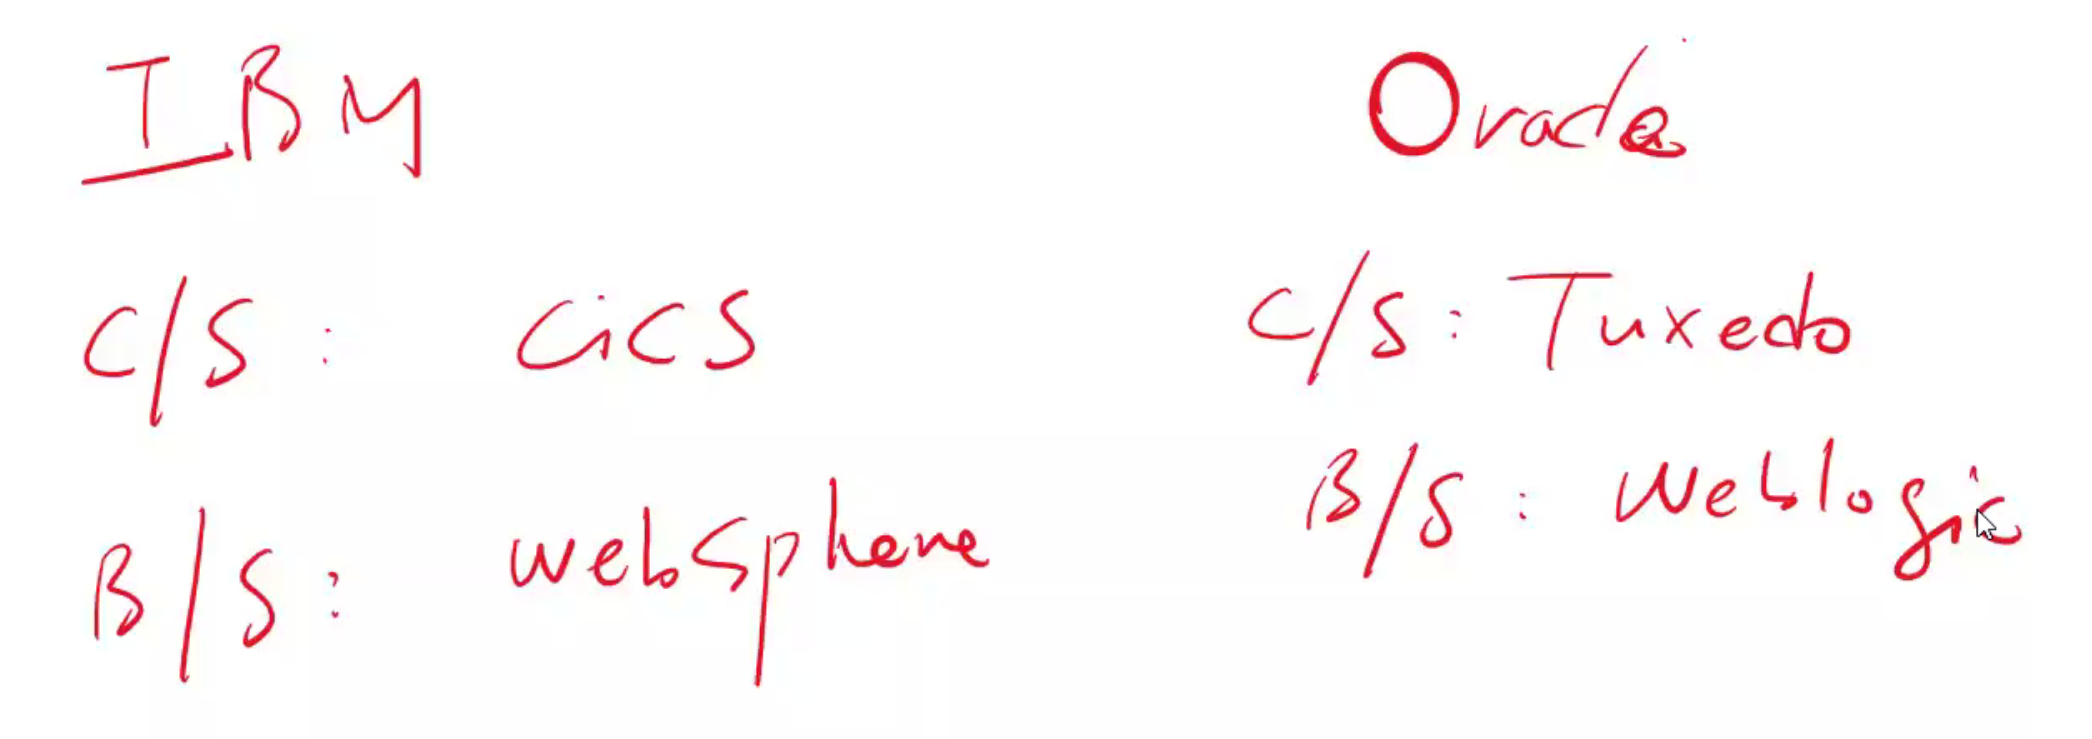 IBM
C/S: CiCS
B/S: WebSphere
Oracle
C/S: Tuxedo
B/S: Weblogic